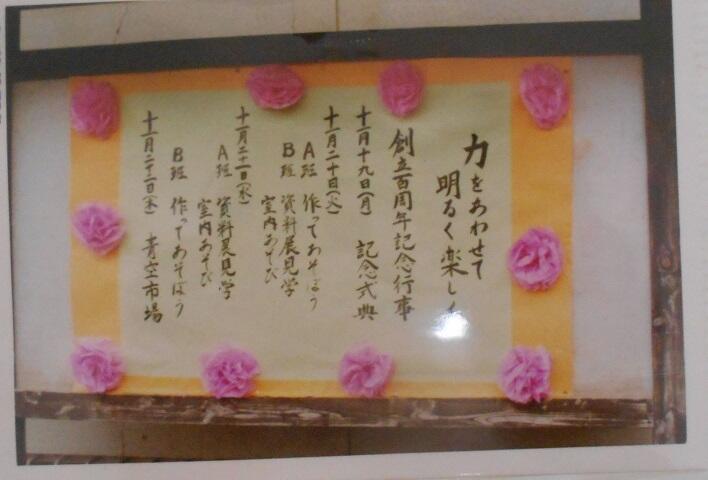 力をあわせて
明るく楽しく
創立百周年記念行事
十一月十九日(月) 記念式典
十一月二十日(火)
A班 作ってあそぼう
B班 資料展見学
室内あそび
十一月二十一日(水)
A班 資料展見学
室内あそび
B班 作ってあそぼう
十一月二十二日(木) 青空市場